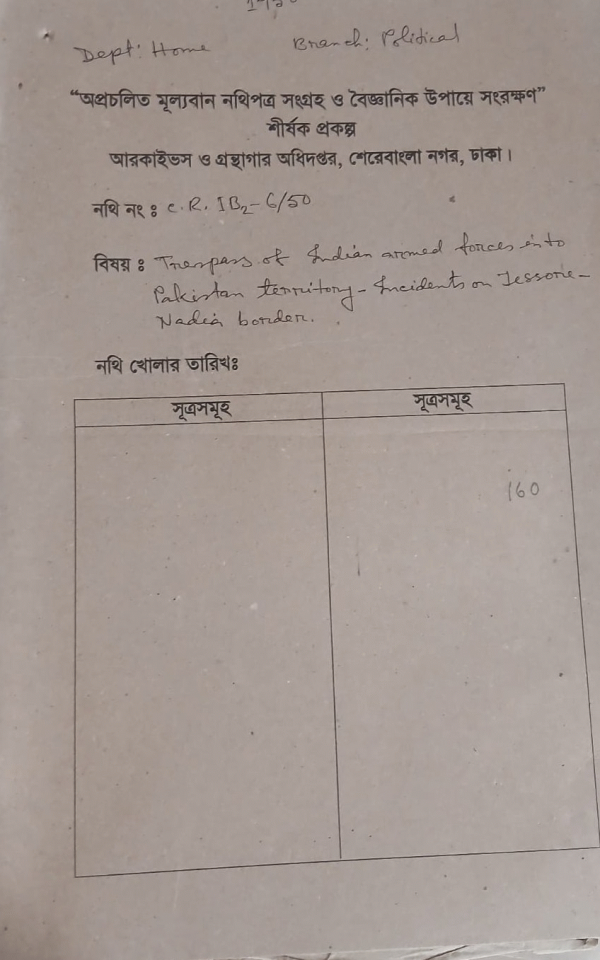 Dept: Home Branch: Political
“অপ্রচলিত মূল্যবান নথিপত্র সংগ্রহ ও বৈজ্ঞানিক উপায়ে সংরক্ষণ”
শীর্ষক প্রকল্প
আরকাইভস ও গ্রন্থাগার অধিদপ্তর, শেরেবাংলা নগর, ঢাকা।
নথি নং ঃ C. R. IB2-6/50
বিষয় ঃ Trespass of Indian armed forces into
Pakistan territory - Incidents on Jessore-
Nadia border.
নথি খোলার তারিখঃ
সূত্রসমূহ সূত্রসমূহ
160